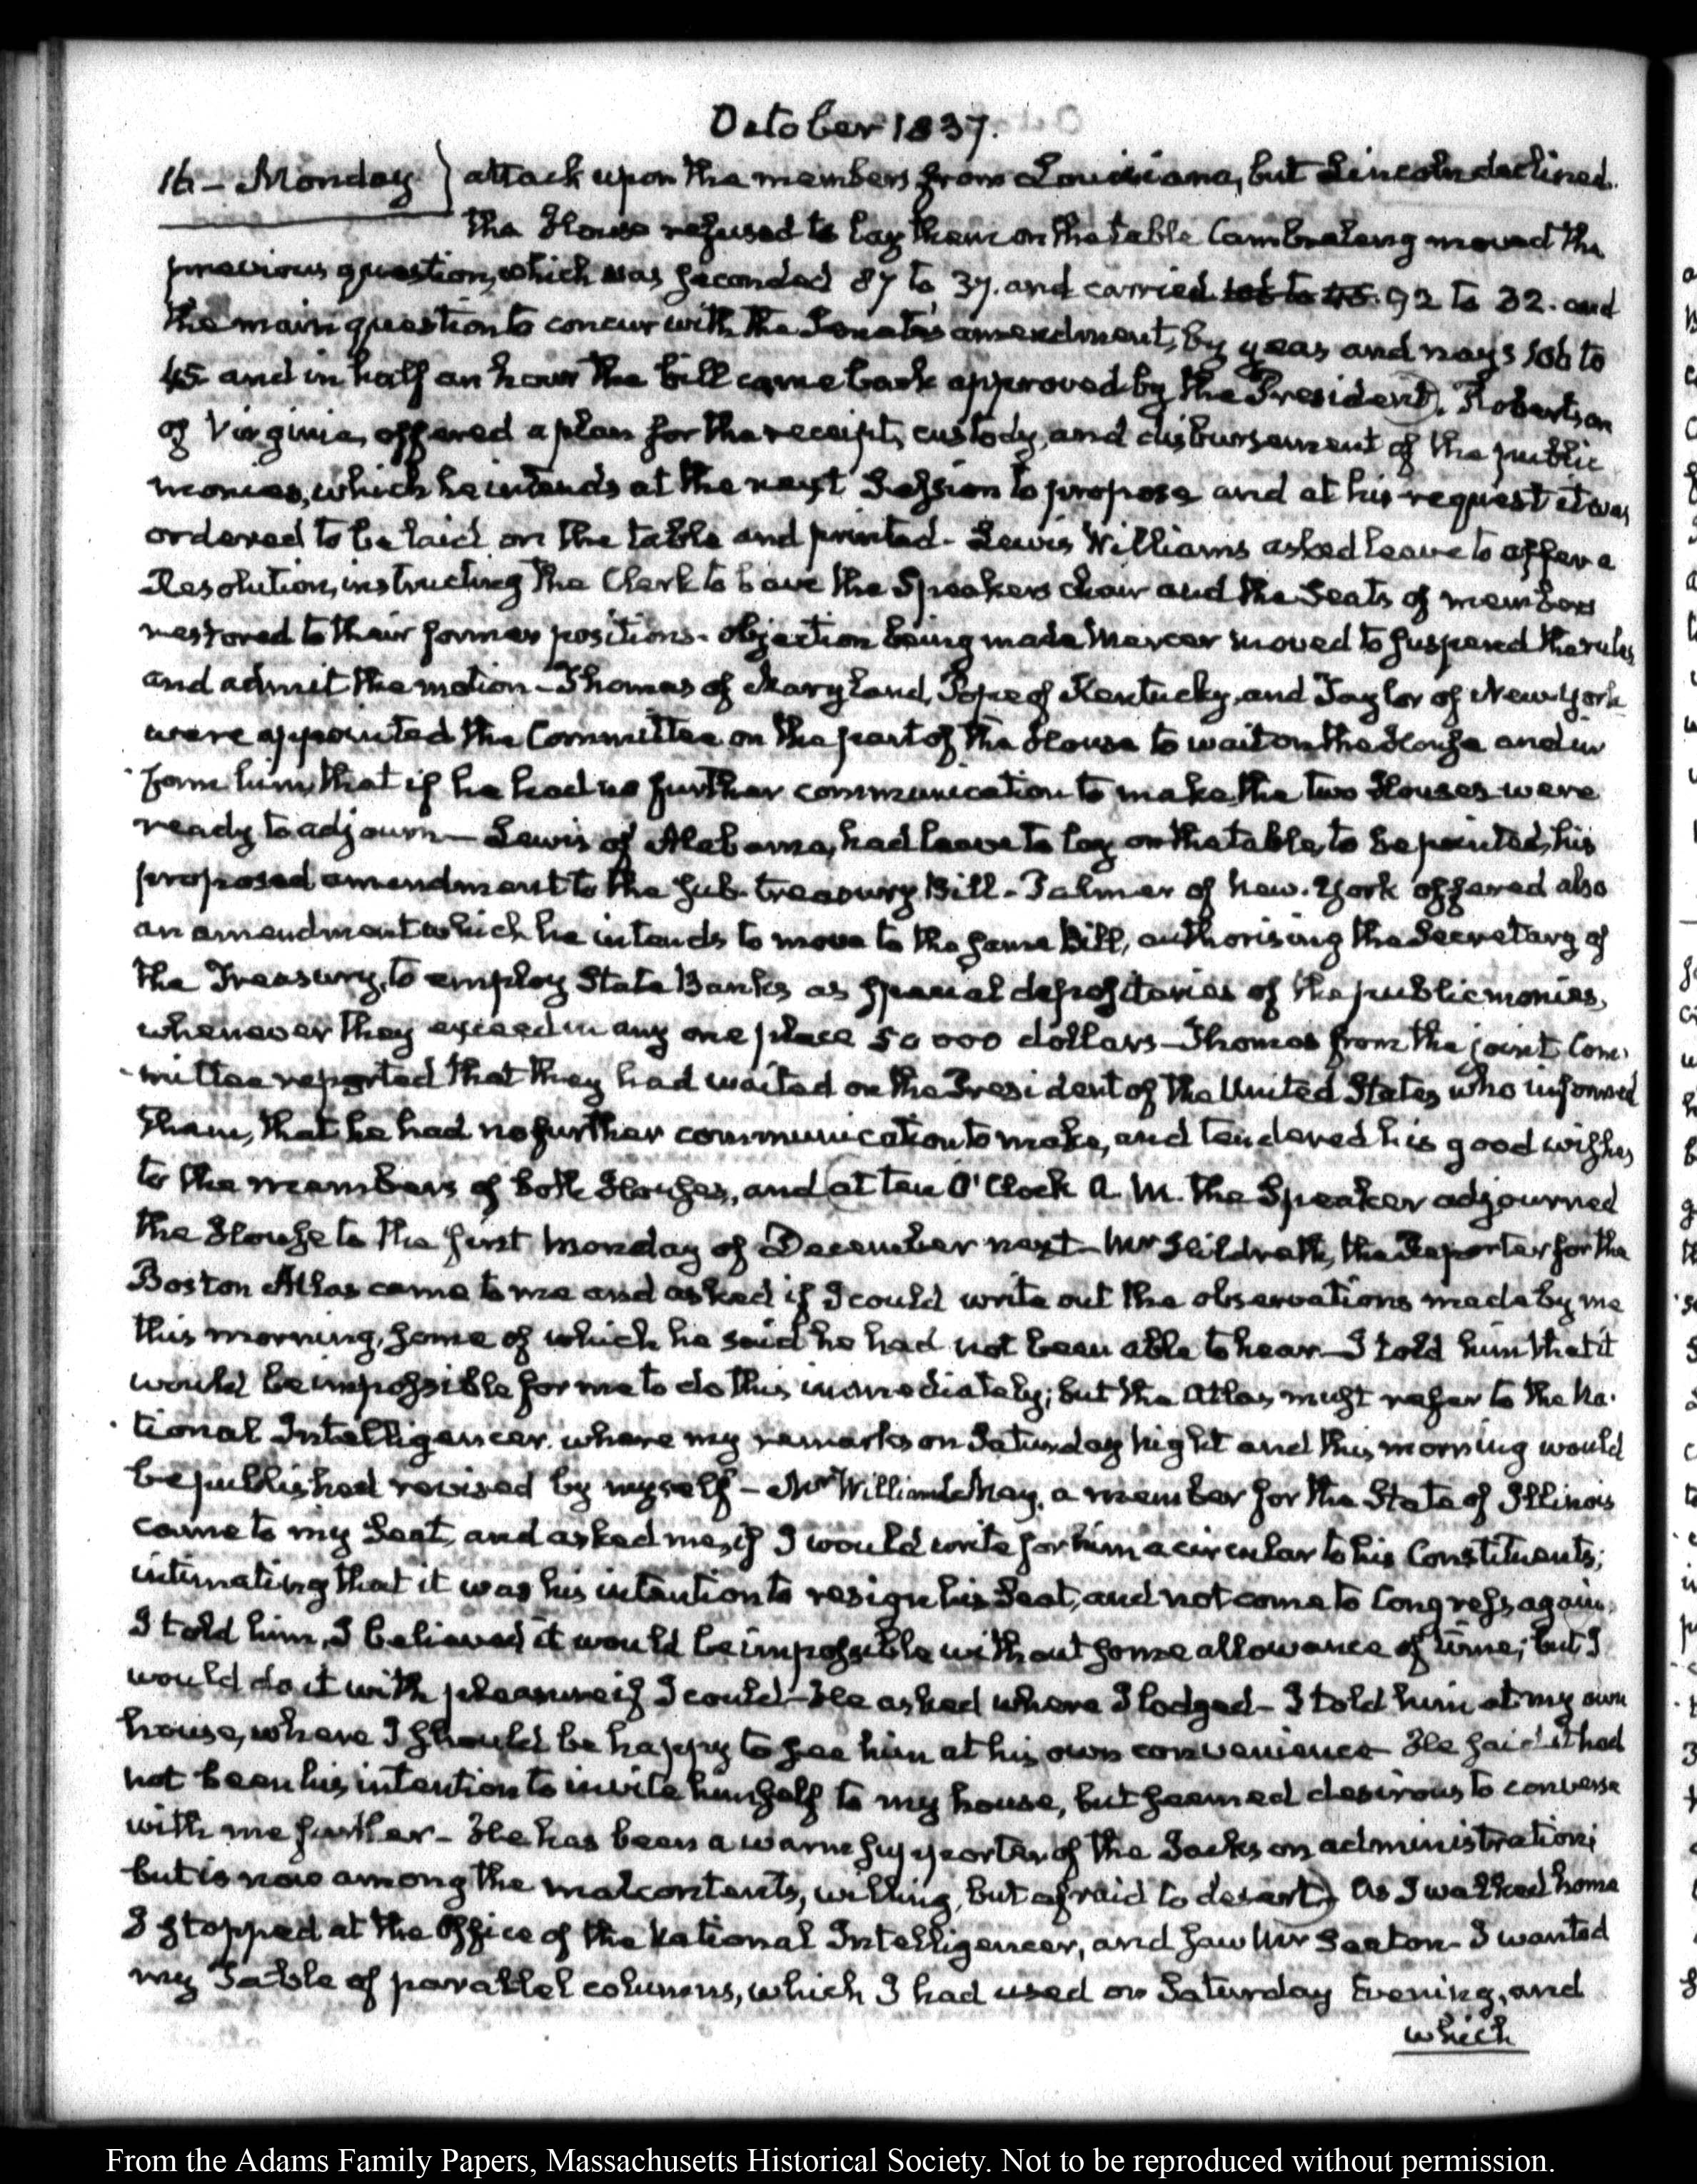 October 1837.
16 – Monday } attack upon the members from Louisiana, but Lincoln declined.
The House refused to lay them on the table Cambreleng moved the
previous question, which was seconded 87 to 37. and carried 106 to 45. 92 to 32. and
the main question to concur with the Senate's amendment, by yeas and nays 106 to
45 and in half an hour the bill came back approved by the President. Robertson
of Virginia, offered a plan for the receipt, custody, and disbursement of the public
monies, which he intends at the next Session to propose and at his request it was
ordered to be laid on the table and printed – Lewis Williams asked leave to offer a
Resolution, instructing the Clerk to have the Speakers chair and the Seats of members
restored to their former positions – objection being made Mercer moved to suspend the rules
and admit the motion – Thomas of Maryland, Pope of Kentucky, and Taylor of New-York
were appointed the Committee on the part of the House to wait on the House and in
form him, that if he had no further communication to make, the two Houses were
ready to adjourn – Lewis of Alabama, had leave to lay on the table, to be printed, his
proposed amendment to the sub-treasury Bill – Palmer of New-York offered also
an amendment which he intends to move to the same Bill, authorising the Secretary of
the Treasury, to employ State Banks as special depositories of the public monies,
whenever they exceed in any one place 50 000 dollars – Thomas from the joint Com-
-mittee reported that they had waited on the President of the United States, who informed
them, that he had no further communication to make, and tendered his good wishes
to the members of both Houses, and at ten O'Clock A. M. the Speaker adjourned
the House to the first Monday of December next – Mr Hildreth, the Reporter for the
Boston Atlas came to me and asked if I could write out the observations made by me
this morning, some of which he said he had not been able to hear – I told him that it
would be impossible for me to do this immediately; but the Atlas might refer to the Na-
-tional Intelligencer. where my remarks on Saturday night and this morning would
be published revised by myself – Mr William L. May, a member for the State of Illinois
came to my Seat, and asked me, if I would write for him a circular to his Constituents;
intimating that it was his intention to resign his Seat, and not come to Congress again.
I told him, I believed it would be impossible without some allowance of time; but I
would do it with pleasure if I could – He asked where I lodged – I told him at my own
house, where I should be happy to see him at his own convenience – He said it had
not been his intention to invite himself to my house, but seemed desirous to converse
with me further – He has been a warm supporter of the Jackson administration;
but is now among the malcontents, willing, but afraid to desert. As I walked home
I stopped at the Office of the National Intelligencer, and saw Mr Seaton – I wanted
my Table of parallel columns, which I had used on Saturday Evening, and
which
From the Adams Family Papers, Massachusetts Historical Society. Not to be reproduced without permission.